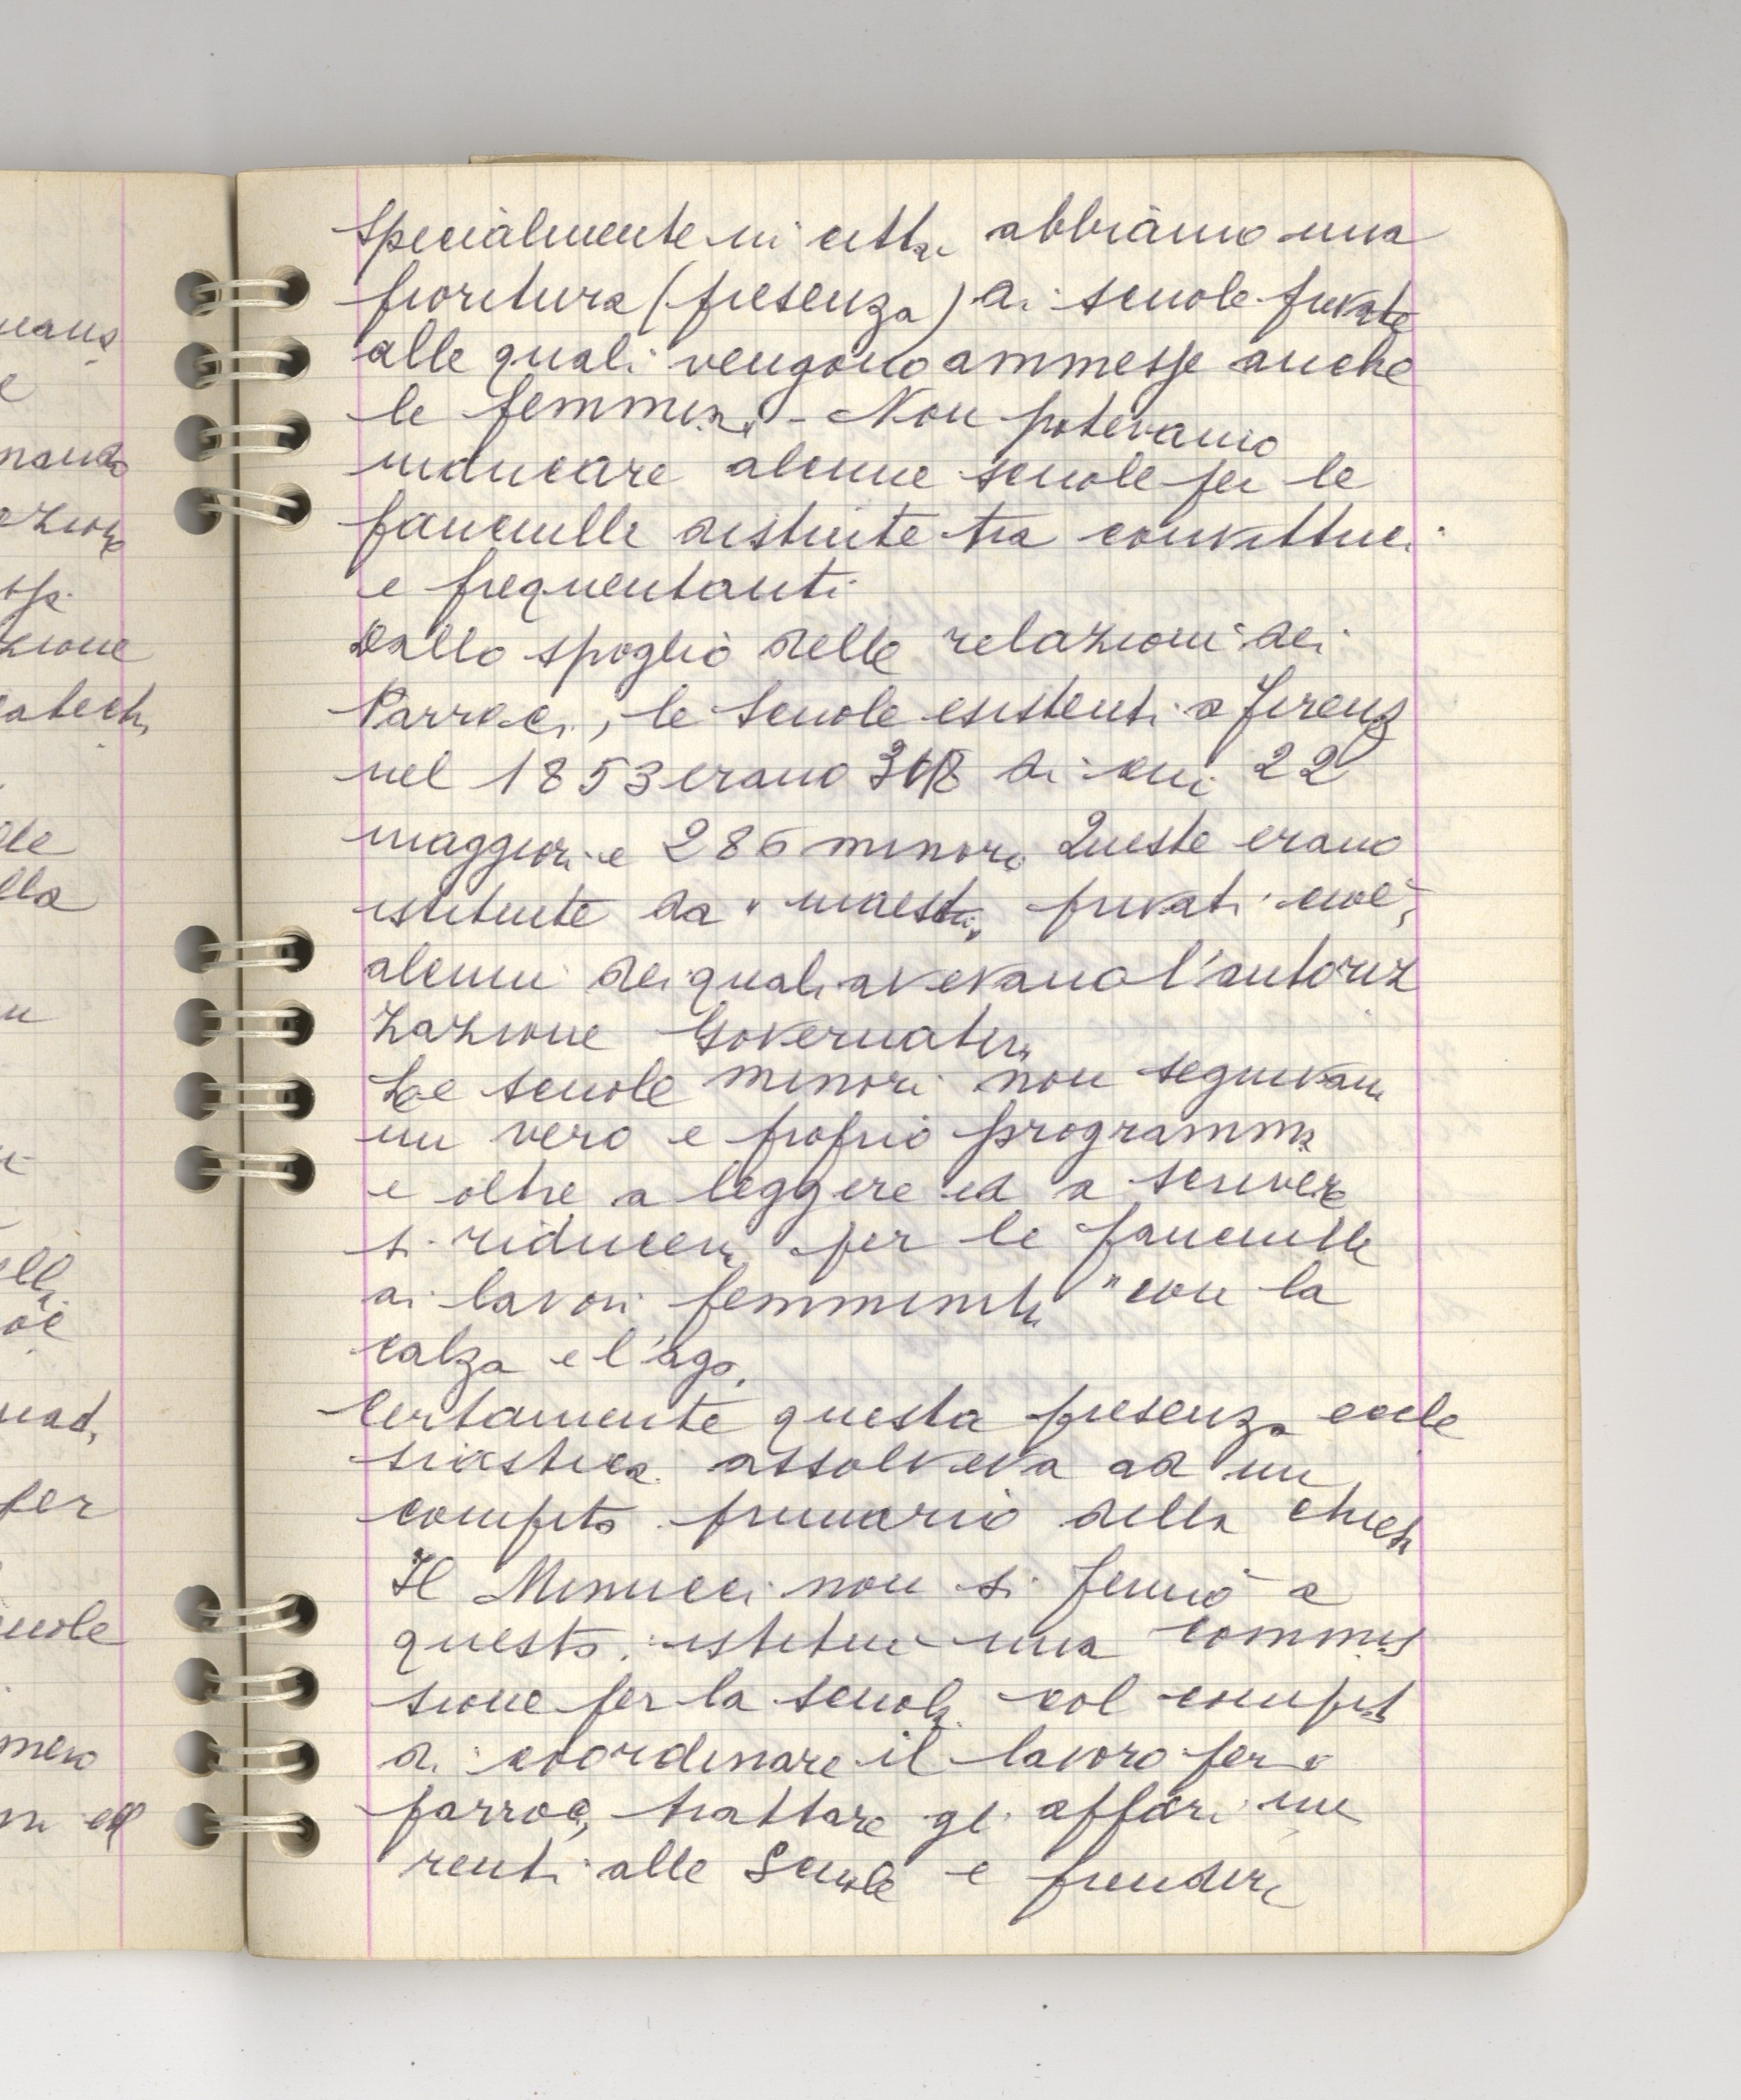 specialmente in città abbiamo una
fioritura (presenza) di scuole private
alle quali vengono ammesse anche
le femmine. - Non potevano
mancare alcune scuole per le
fanciulle distinte tra convittrici
e frequentanti
Dallo spoglio delle relazioni dei
Parroci, le scuole esistenti a Firenze
nel 1853 erano 308 di cui 22
maggiori e 286 minori Queste erano
istituite da "maestri" privati cioè,
alcuni dei quali avevano l'autoriz
zazione Governativa
Le scuole minori non seguivano
un vero e proprio programma
e oltre a leggere ed a scrivere
si riduceva per le fanciulle
ai lavori femminili "con la
calza e l'ago.
Certamente questa presenza eccle
siastica assolveva ad un
compito primario della chiesa
Il Minucci non si fermò a
questo. istituì una commis
sione per la scuola col compito
di coordinare il lavoro per i
parroci, trattare gli affari ine
renti alle Scuole e prendere